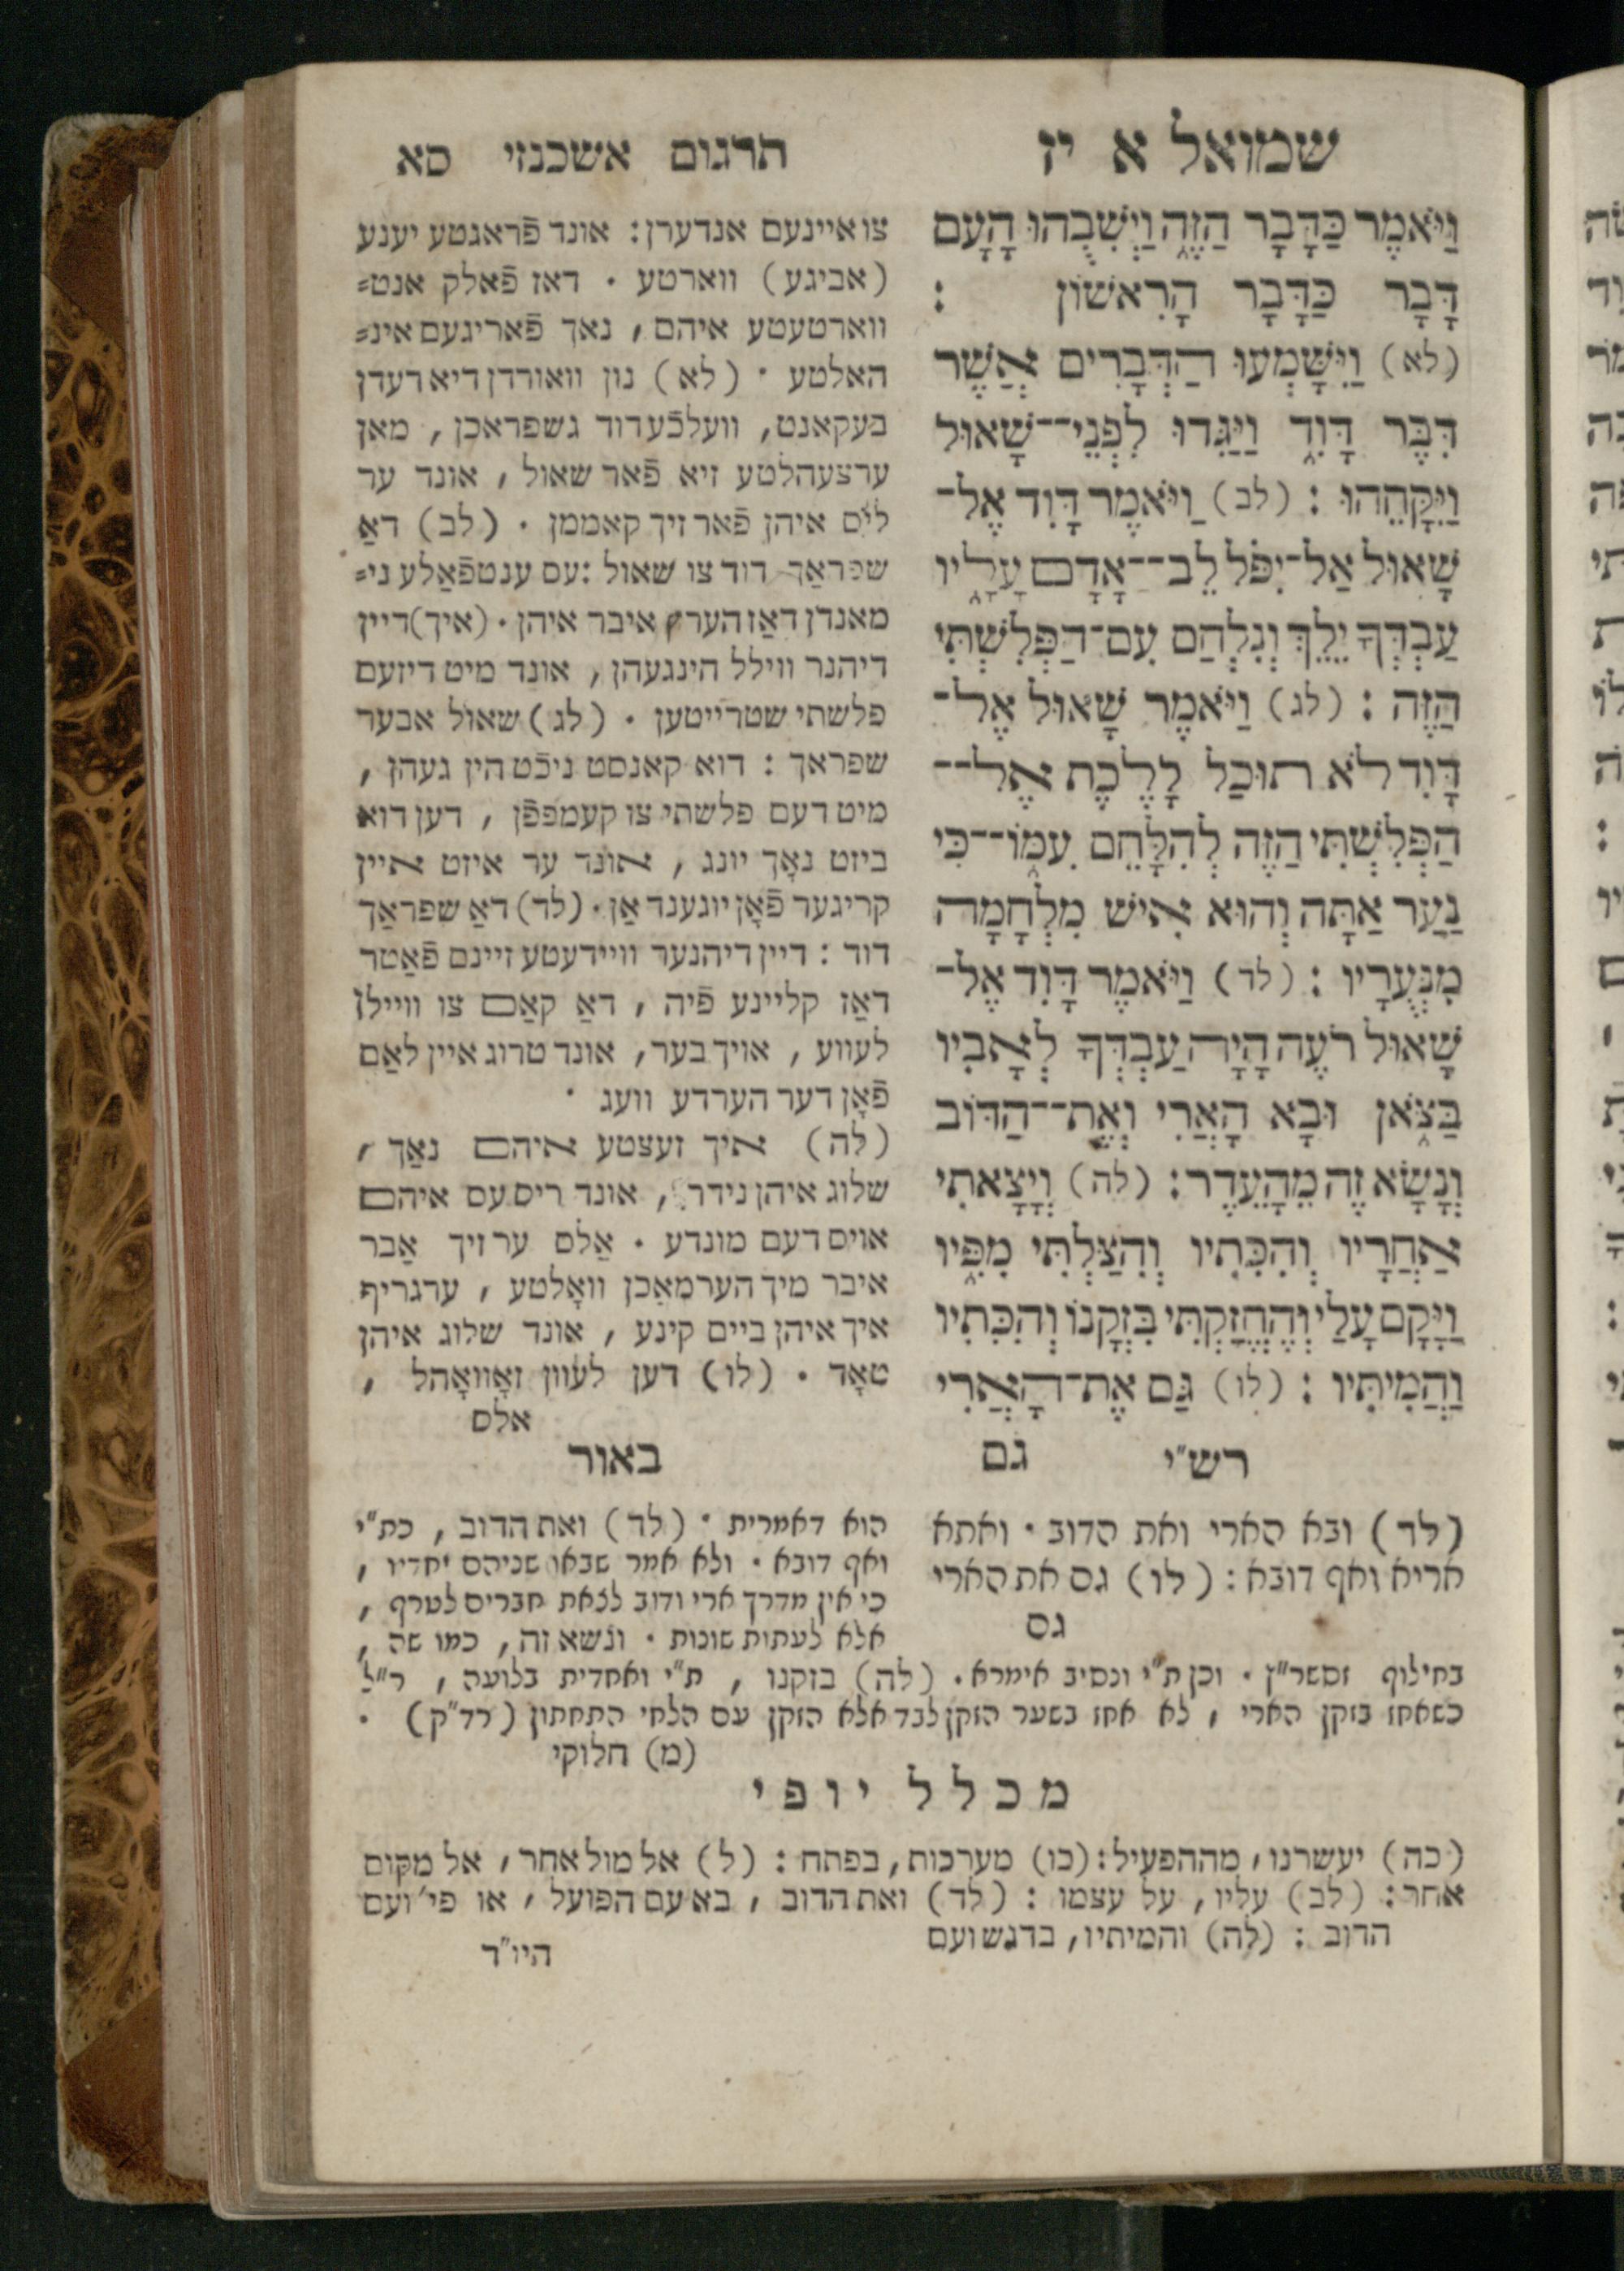 שמואל א יז
תרגום אשכנזי סא
וַיֹּאמֶר כַּדָּבָר הַזֶּה וַיְשִׁבֻהוּ הָעָם
דָּבָר כַּדָּבָר הָרִאשׁוֹן :
(לא) וַיִּשָּׁמְעוּ הַדְּבָרִים אֲשֶׁר
דִּבֶּר דָּוִד וַיַּגִּדוּ לִפְנֵי־שָׁאוּל
וַיִּקָּחֵהוּ : (לב) וַיֹּאמֶר דָּוִד אֶל־
שָׁאוּל אַל־יִפֹּל לֵב־אָדָם עָלָיו
עַבְדְּךָ יֵלֵךְ וְנִלְחַם עִם־הַפְּלִשְׁתִּי
הַזֶּה : (לג) וַיֹּאמֶר שָׁאוּל אֶל־
דָּוִד לֹא תוּכַל לָלֶכֶת אֶל־
הַפְּלִשְׁתִּי הַזֶּה לְהִלָּחֵם עִמּוֹ־כִּי
נַעַר אַתָּה וְהוּא אִישׁ מִלְחָמָה
מִנְּעֻרָיו : (לד) וַיֹּאמֶר דָּוִד אֶל־
שָׁאוּל רֹעֶה הָיָה עַבְדְּךָ לְאָבִיו
בַּצֹּאן וּבָא הָאֲרִי וְאֶת־הַדּוֹב
וְנָשָׂא זֶה מֵהָעֵדֶר : (לה) וְיָצָאתִי
אַחֲרָיו וְהִכִּתִיו וְהִצַּלְתִּי מִפִּיו
וַיָּקָם עָלַי וְהֶחֱזַקְתִּי בִּזְקָנוֹ וְהִכִּתִיו
וַהֲמִיתִּיו : (לו) גַּם אֶת־הָאֲרִי
גם
צו איינעם אנדערן : אונד פֿראגטע יענע
(אביגע) ווארטע . דאז פֿאלק אנט=
ווארטעטע איהם , נאך פֿאריגעם אינ=
האלטע . (לא) נון וואורדן דיא רעדן
בעקאנט, וועלכֿע דוד גשפראכן , מאן
ערצעהלטע זיא פֿאר שאול , אונד ער
ליס איהן פֿאר זיך קאממן . (לב) דאַ
שפראַך דוד צו שאול : עס ענטפֿאַלע ני=
מאנדן דאַז הערץ איבר איהן . (איך) דיין
דיהנר ווילל הינגעהן , אונד מיט דיזעם
פלשתי שטרייטען . (לג) שאול אבער
שפראך : דוא קאנסט ניכֿט הין געהן ,
מיט דעם פלשתי צו קעמפפֿן , דען דוא
ביזט נאָך יונג , אונד ער איזט איין
קריגער פֿאָן יוגענד אַן . (לד) דאַ שפראַך
דוד : דיין דיהנער וויידעטע זיינם פֿאַטר
דאַז קליינע פֿיה , דאַ קאַם צו ווײלן
לעווע , אויך בער , אונד טרוג איין לאַם
פֿאָן דער הערדע וועג .
(לה) איך זעצטע איהם נאַך ,
שלוג איהן נידר , אונד ריס עס איהם
אויס דעם מונדע . אַלס ער זיך אַבר
איבר מיך הערמאַכן וואָלטע , ערגריף
איך איהן ביים קינע , אונד שלוג איהן
טאָד . (לו) דען לעוון זאָוואָהל ,
אלס
רש״י
(לד) ובא הארי ואת הדוב . ואתא
אריא ואף דובא : (לו) גם את הארי
גם
באור
הוא דאמרית . (לד) ואת הדוב , כת״י
ואף דובא . ולא אמר שבאו שניהם יחדיו ,
כי אין מדרך ארי ודוב לצאת חברים לטרף ,
אלא לעתות שונות . ונשא זה , כמו שה ,
בחילוף זסשר״ץ . וכן ת״י ונסיב אימרא . (לה) בזקנו , ת״י ואחדית בלועה , ר״ל
כשאחז בזקן הארי , לא אחז בשער הזקן לבד אלא הזקן עם הלחי התחתון (רד״ק) .
(מ) חלוקי
מכלל יופי
(כה) יעשרנו , מההפעיל : (כו) מערכות , בפתח : (ל) אל מול אחר , אל מקום
אחר : (לב) עליו , על עצמו : (לד) ואת הדוב , בא עם הפועל , או פי׳ ועם
הדוב : (לה) והמיתיו , בדגש ועם
היו״ד